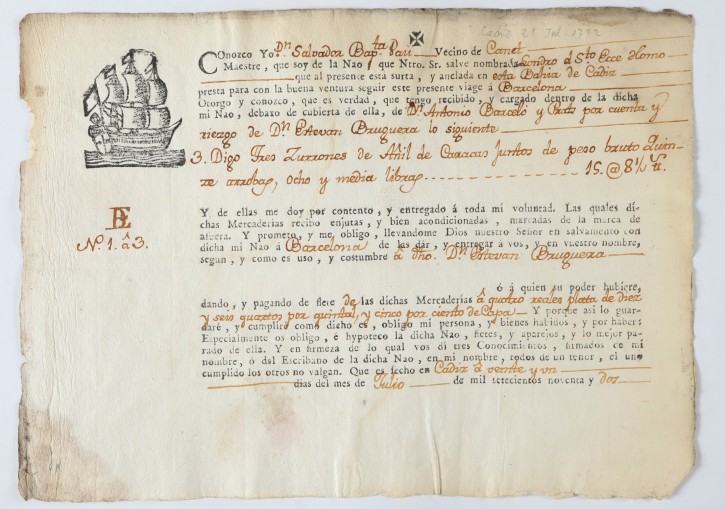 Cadiz 21 Jul. 1792
Conozco Yo Dn. Salvador Bapta. Pau Vecino de Canet
Maestre, que soy de la Nao, que Ntro. Sr. salve nombrada Sto. Ecce Homo
que al presente está surta, y anclada en esta Bahia de Cadiz
presta para con la buena ventura seguir este presente viage á Barcelona
Otorgo y conozco, que es verdad, que tengo recibido, y cargado dentro de la dicha
mi Nao, debaxo de cubierta de ella, de Dn. Antonio Barceló y Prats por cuenta y
riezgo de Dn. Estevan Bruguera lo siguiente
3. Digo Tres Zurrones de Añil de Caracas Juntos de peso bruto Quin-
ze arrobas, ocho y media libras 15. @ 8½ ℔.
Y de ellas me doy por contento, y entregado á toda mi voluntad. Las quales di-
chas Mercaderías recibo enjutas, y bien acondicionadas, marcadas de la marca de
afuera. Y prometo, y me obligo, llevandome Dios nuestro Señor en salvamento con
dicha mi Nao á Barcelona de las dár, y entregar á vos, y en vuestro nombre,
BE
N.º 1. â 3.
segun, y como es uso, y costumbre á dho. Dn. Estevan Bruguera
ó á quien su poder hubiere,
dando, y pagando de flete de las dichas Mercaderías á quatro reales plata de diez
y seis quartos por quintal, y cinco por ciento de Capa Y porque asi lo guar-
daré, y cumpliré como dicho es, obligo mi persona, y bienes habidos, y por haber:
Especialmente os obligo, é hypoteco la dicha Nao, fletes, y aparejos, y lo mejor pa-
rado de ella. Y en firmeza de lo qual vos dí tres Conocimientos, firmados de mi
nombre, ó del Escribano de la dicha Nao, en mi nombre, todos de un tenor, el uno
cumplido los otros no valgan. Que es fecho en Cádiz á veinte y un
dias del mes de Julio de mil setecientos noventa y dos